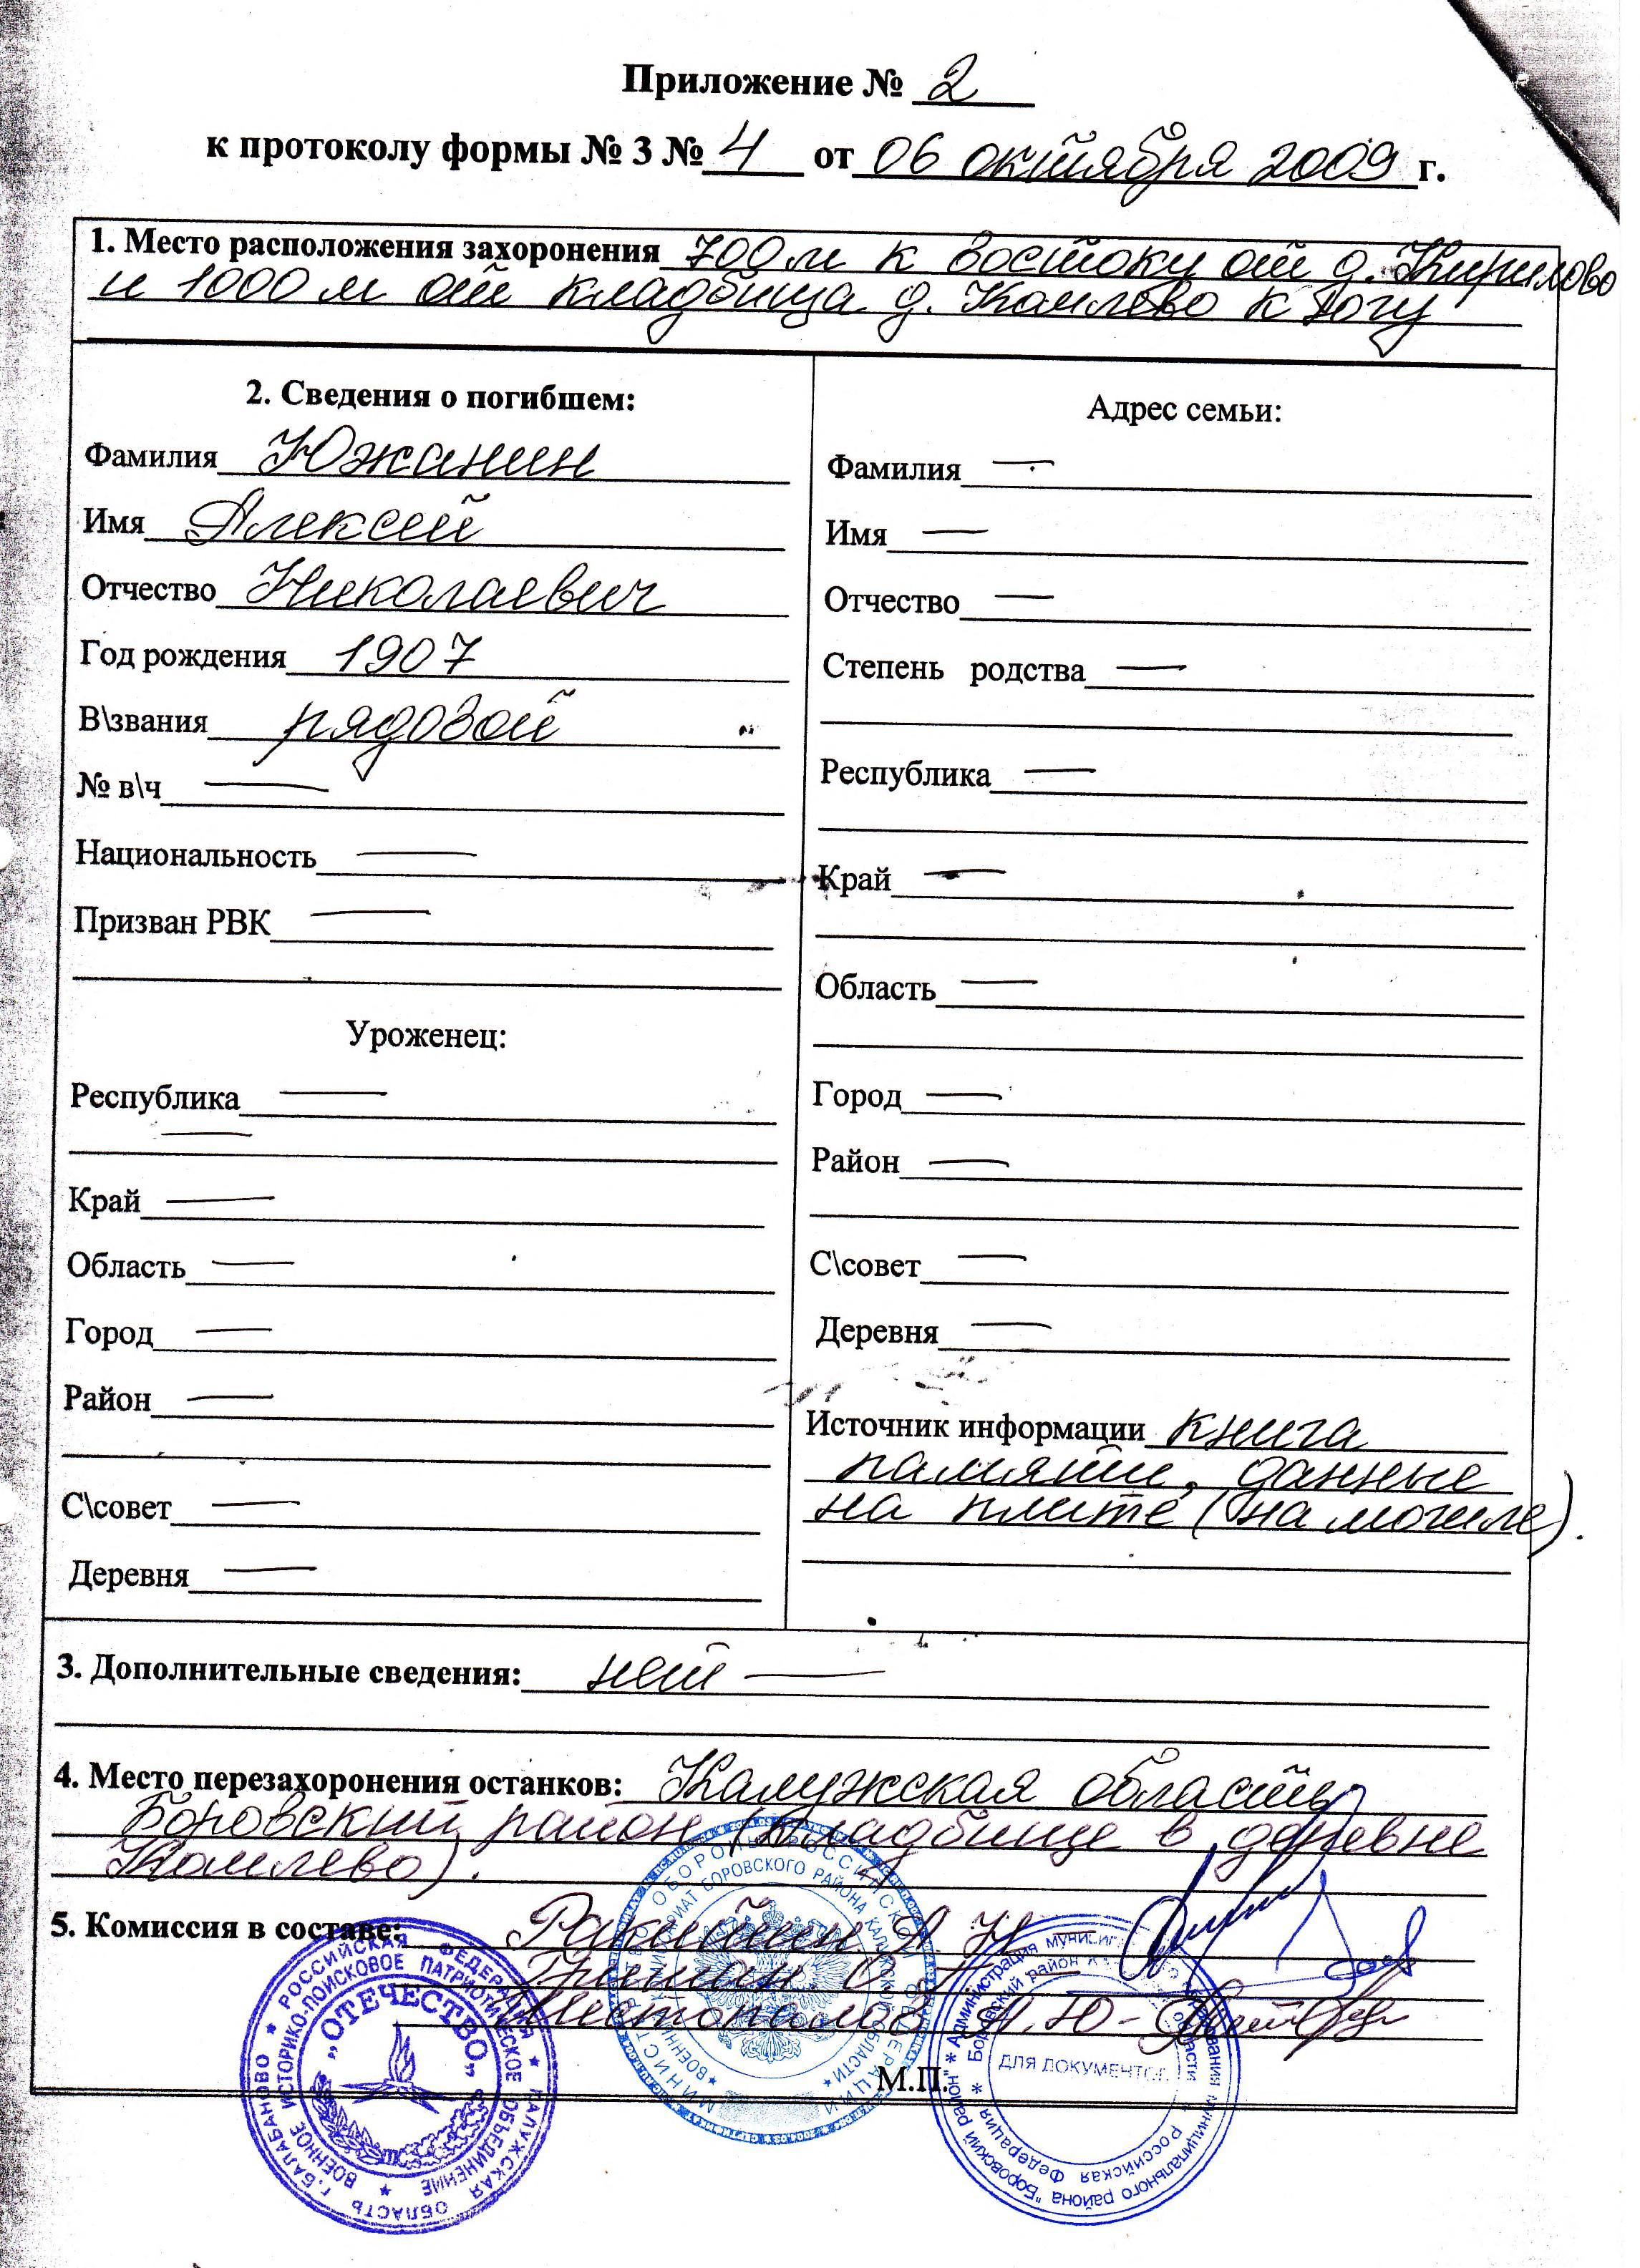 Приложение № 2
к протоколу формы № 3 № 4 от 06 октября 2009 г.
1. Место расположения захоронения 700м к востоку от д. Кирилово
и 1000 м от кладбища д. Комлево к югу
2. Сведения о погибшем:
Фамилия Южанин
Имя Алексей
Отчество Николаевич
Год рождения 1907
В\звания рядовой
№ в\ч —
Национальность —
Призван РВК —
Уроженец:
Республика —
—
Край —
Область —
Город —
Район —
С\совет —
Деревня —
Адрес семьи:
Фамилия —
Имя —
Отчество —
Степень родства —
Республика —
Край —
Область —
Город —
Район —
С\совет —
Деревня —
Источник информации книга
памяти, данные
на плите (на могиле).
3. Дополнительные сведения: нет —
4. Место перезахоронения останков: Калужская область
Боровский район (кладбище в деревне
Комлево).
5. Комиссия в составе: Ракитин А.Н.
М.П.
РОССИЙСКАЯ ФЕДЕРАЦИЯ * КАЛУЖСКАЯ ОБЛАСТЬ Г.БАЛАБАНОВО *
ВОЕННОЕ ИСТОРИКО-ПОИСКОВОЕ ПАТРИОТИЧЕСКОЕ ОБЪЕДИНЕНИЕ *
„ОТЕЧЕСТВО„
МИНИСТЕРСТВО ОБОРОНЫ РОССИЙСКОЙ ФЕДЕРАЦИИ
БОРОВСКОГО РАЙОНА КАЛУЖСКОЙ ОБЛАСТИ
Администрация муниципального района "Боровский район" *
Боровский район
Российская Федерация *
ДЛЯ ДОКУМЕНТОВ